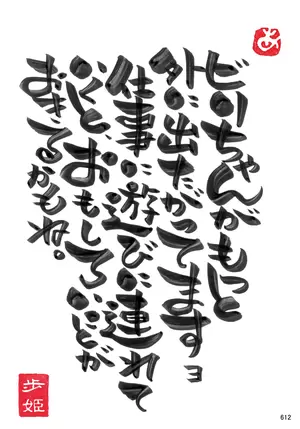 あ
ビーちゃんがもっと
外に出たがってますョ
仕事に遊びに連れて
いくとおもしろいことが
おきるかもね。
歩姫
612